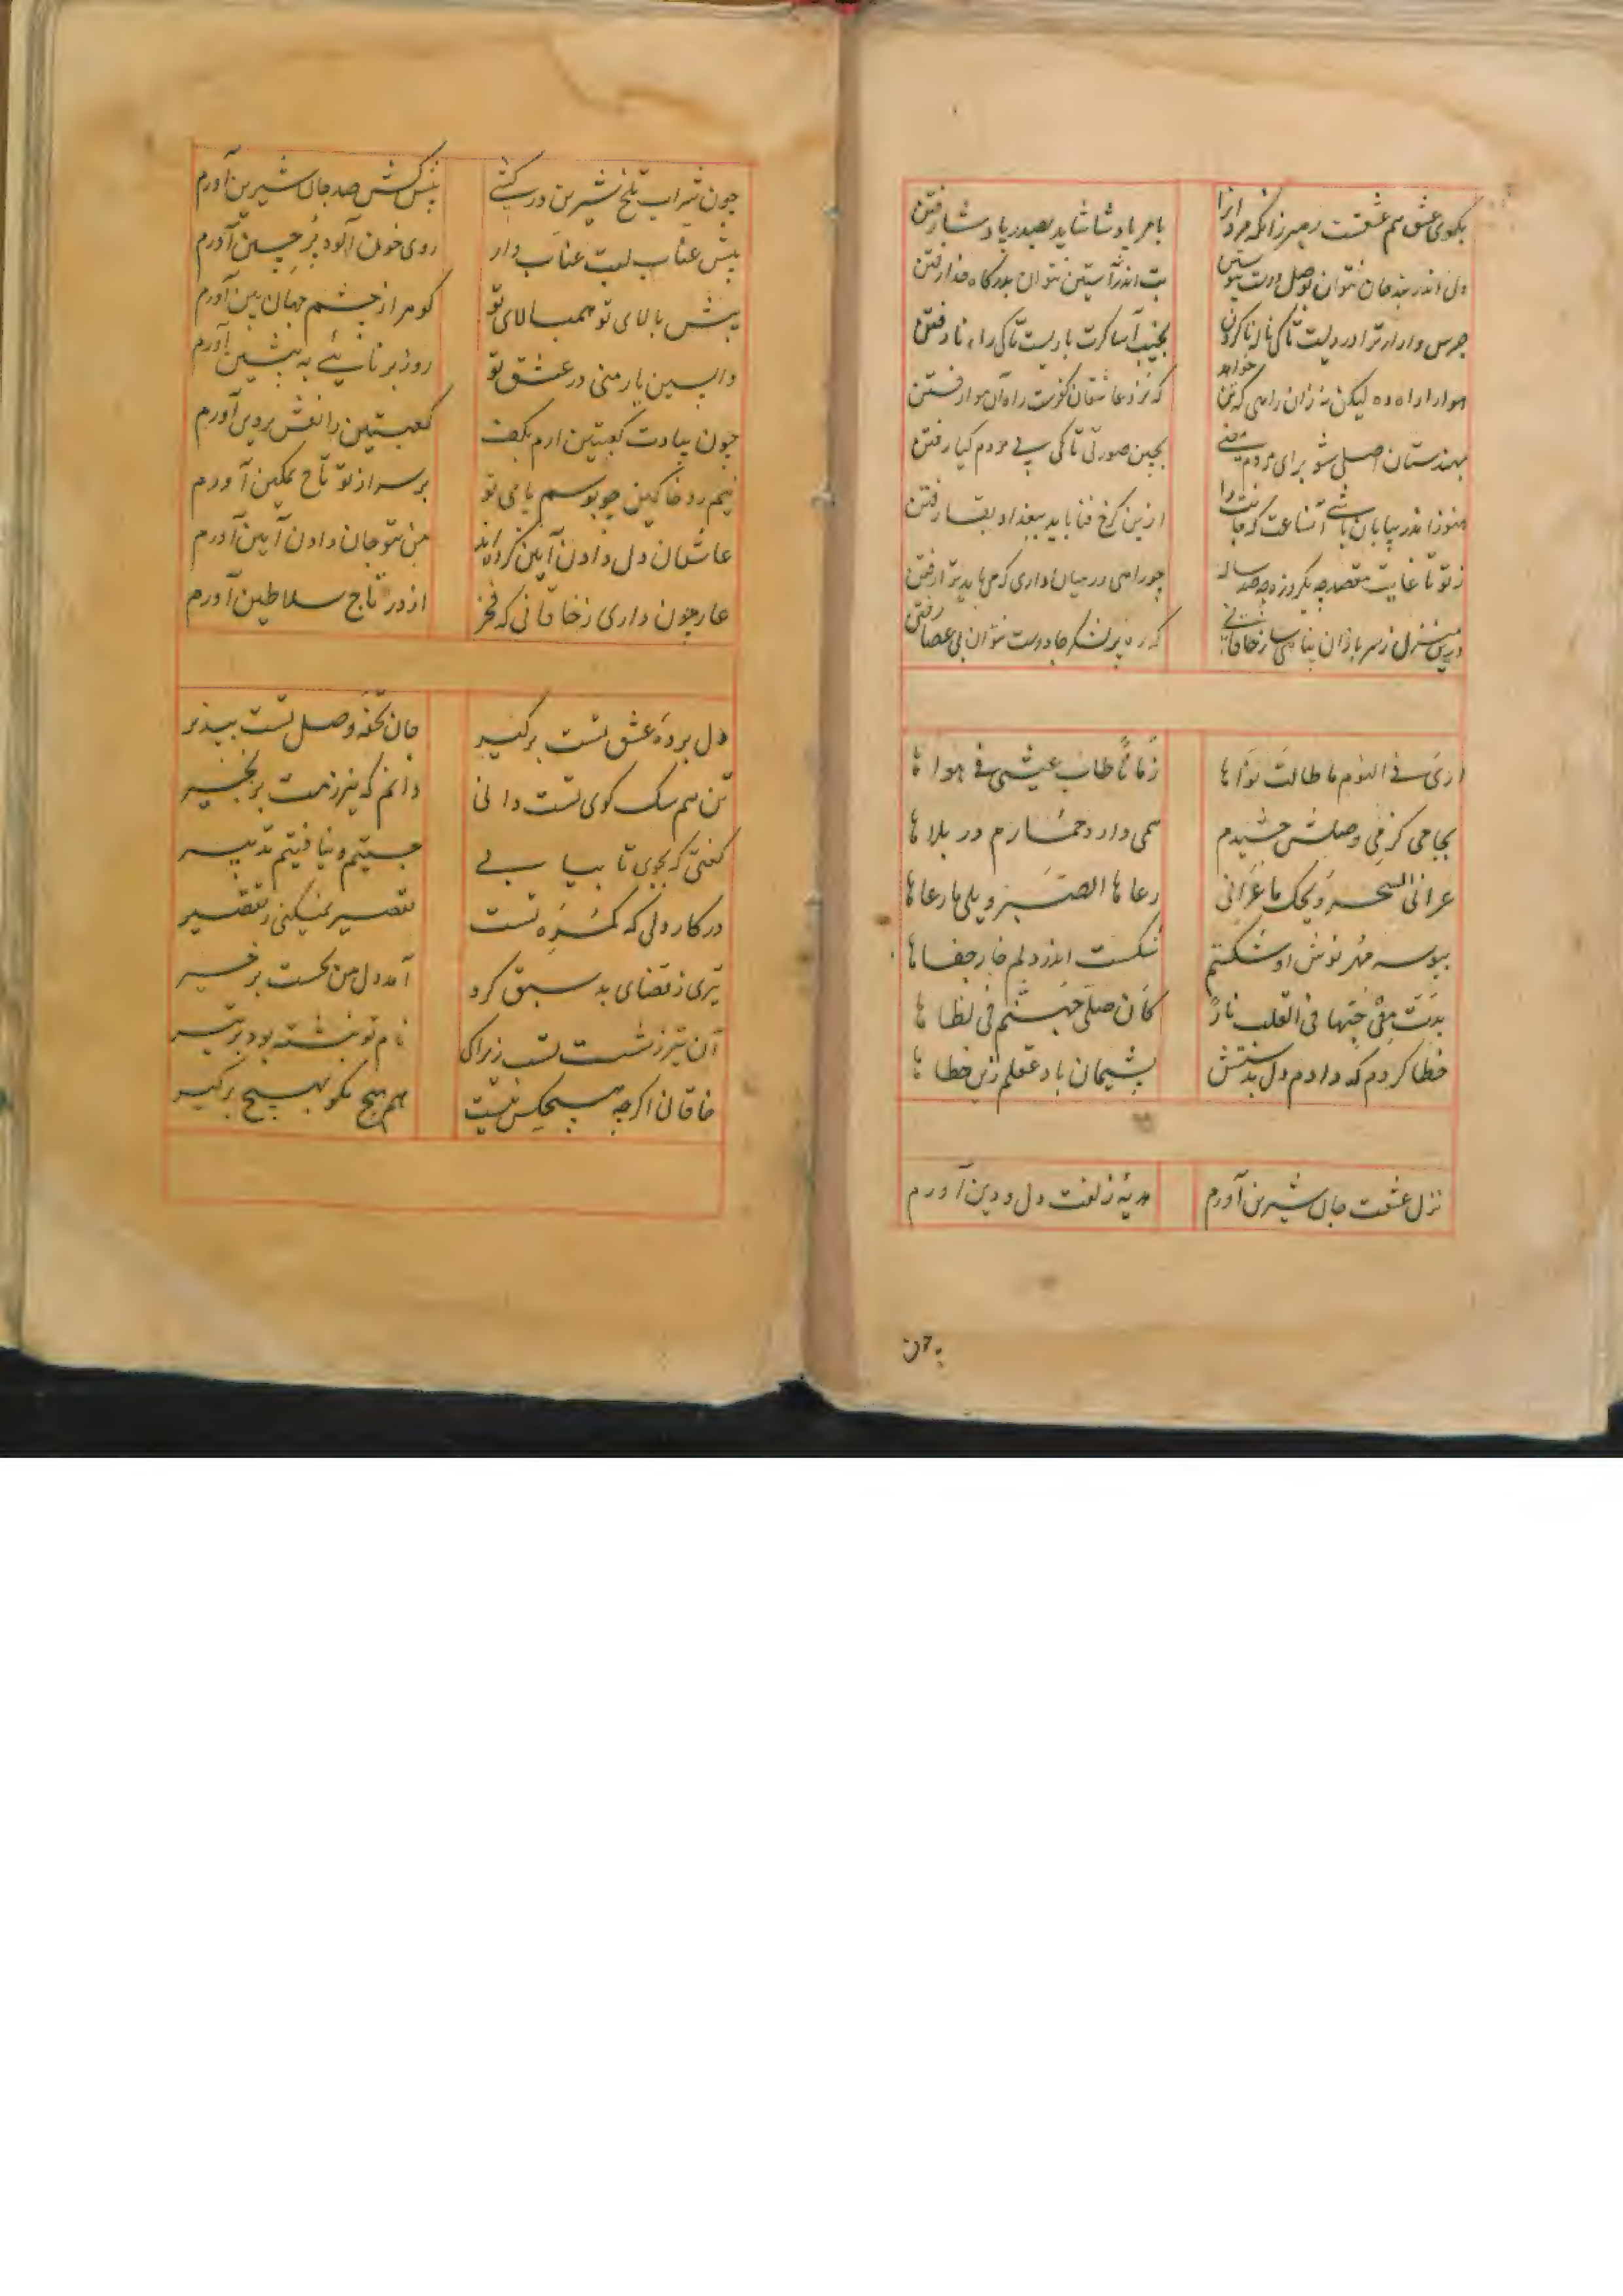 بکوی عشق هم عشقت رهبر زانکه مردانرا
بامر پادشا شاید بصدر پادشا رفتن
دل اندر بند جان نتوان بوصل دوست پیوستن
بت اندر آستین نتوان بدرکاه خدا رفتن
جرس وار ار ترا دردیست تا کی ناله کردن
نجیب آسا کرت بادیست تا کی راه نا رفتن
هوا را راه ده لیکن نه زان راهی که تن خواهد
که نزد عاشقان کفرست راه آن هوا رفتن
بهندستان اصلی شو برای مردم معنی
بچین صورتی تا کی پی مردم کیا رفتن
هنوز اندر بیابان باشی آنساعت که جانت را
ازین کرخ فنا باید ببغداد بقا رفتن
ز تو تا غایت مقصد چه یکروزه چه صد ساله
چو راهی در میان داری که می‌باید ترا رفتن
درین منزل ز سربازان پناهی ساز خاقانی
که ره پر لشکر جادوست نتوان بی عصا رفتن
اری فی النوم ما طالت نواها
زمانا طاب عیشی فی هواها
بجامی کز می وصلش چشیدم
همی دارد خمارم در بلاها
عرانی السحر ویحک ما عرانی
رعاها الصبر ویلی ما رعاها
ببوسه مهر نوش او شکستم
شکست اندر دلم خار جفاها
بدت من حبها فی القلب نار
کان صلی جهنم فی لظاها
خطا کردم که دادم دل بدستش
پشیمان باد عقلم زین خطاها
نزل عشقت جان شیرین آورم
هدیهٔ زلفت دل و دین آورم
چون
چون شراب تلخ شیرین درکشی
پیش‌کش صد جان شیرین آورم
پیش عناب لبت عناب وار
روی خون آلود پر چین آورم
پیش بالای تو همبالای تو
کوهر از چشم جهان بین آورم
واپسین یار منی در عشق تو
روز برنائی به پیشین آورم
چون بیادت کعبتین آرم بکف
کعبتین را نقش پروین آورم
نیم رو خاکین چو بوسم پای تو
بر سر از تو تاج تمکین آورم
عاشقان دل دادن آیین کرده‌اند
من بتو جان دادن آیین آورم
عار چون داری ز خاقانی که فخر
از در تاج سلاطین آورم
دل بردهٔ عشق تست برکیر
جان تحفهٔ وصل تست بپذیر
تن هم سک کوی تست دانی
دانم که نیرزدت برنجیر
کفتی که بجوی تا بیابی
جستیم و نیافتیم تدبیر
در کار دلی که کمره تست
تقصیر نمیکنی ز تقصیر
تیری ز قضای بد سبق کرد
آمد دل من بخست بر خیر
آن تیر ز شست تست زیراک
نام تو نبشته بود بر تیر
خاقانی اکرچه هیچکس نیست
هم هیچ مکو بهیچ برکیر